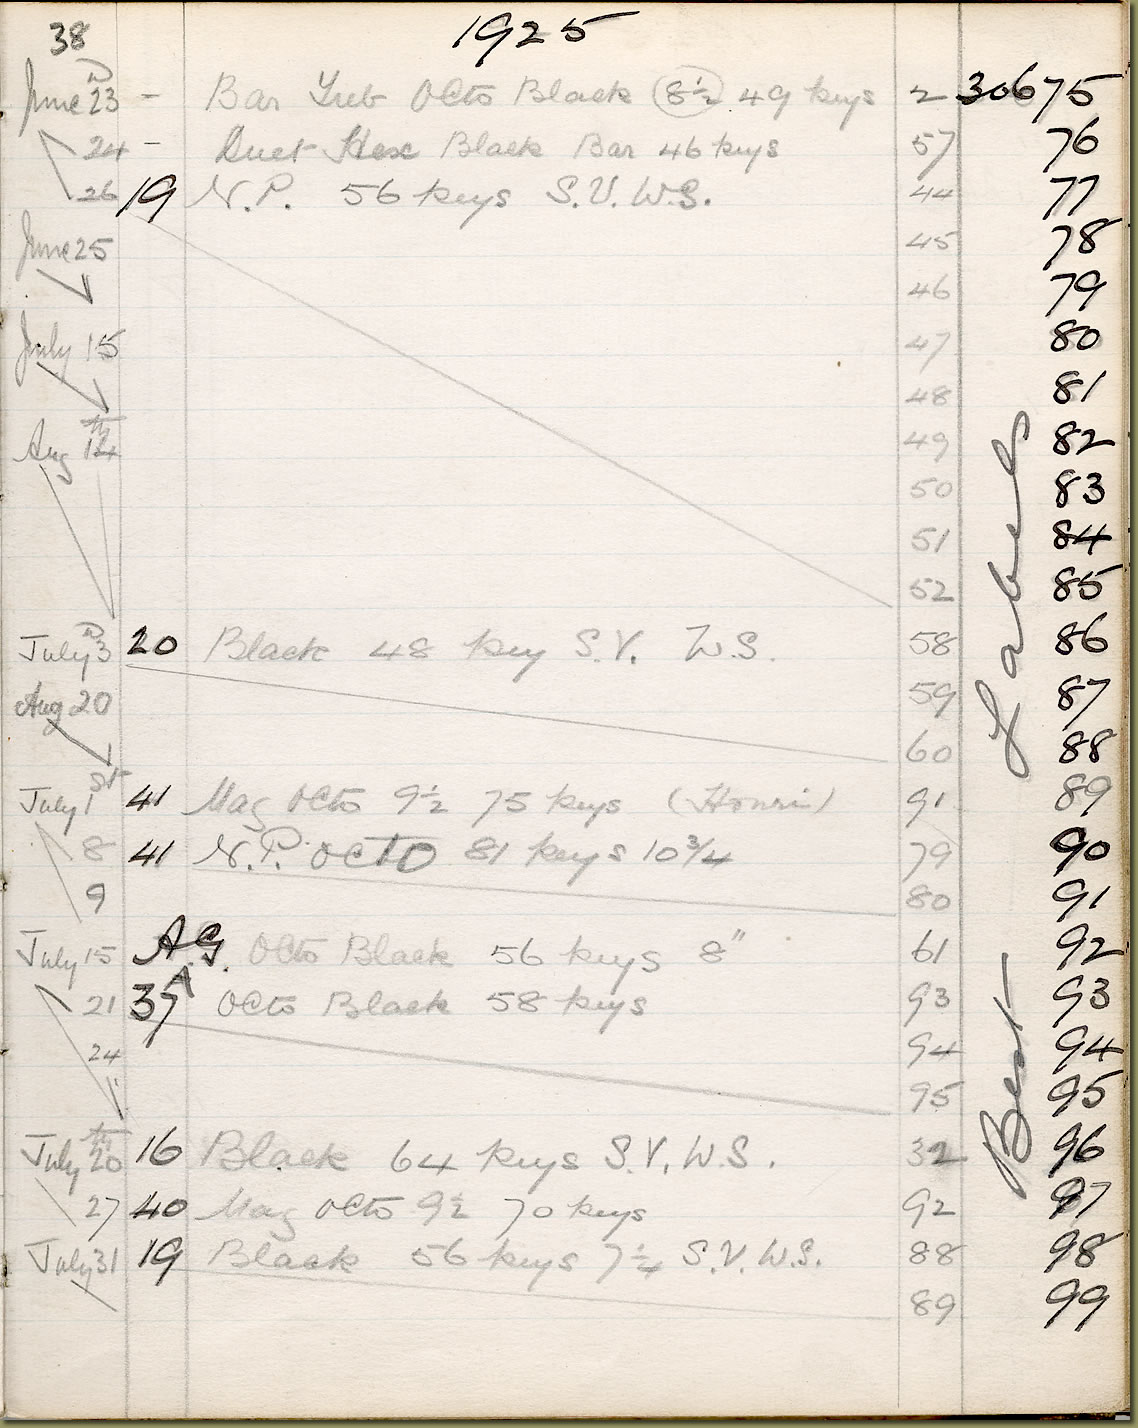 38 1925
June 23 - Bar Treb Octo Black (8½) 49 keys 2 30675
24 - Duet Hex Black Bar 46 keys 57 76
26 19 N.P. 56 keys S.V. W.S. 44 77
June 25 45 78
46 79
July 15 47 80
48 81
Aug 49 82
50 83
51 84
52 85
July 3 20 Black 48 key S.V. W.S. 58 86
Aug 20 59 87
60 88
July 1st 41 Mag Octo 9½ 75 keys 91 89
8 41 N.P. OCTO 81 keys 10¾ 79 90
9 80 91
July 15 A.G. Octo Black 56 keys 8" 61 92
21 37A Octo Black 58 keys 93 93
24 94 94
95 95
July 20th 16 Black 64 keys S.V. W.S. 32 96
27 40 Mag Octo 9½ 70 keys 92 97
July 31 19 Black 56 keys 7¼ S.V. W.S. 88 98
89 99
Best Labels